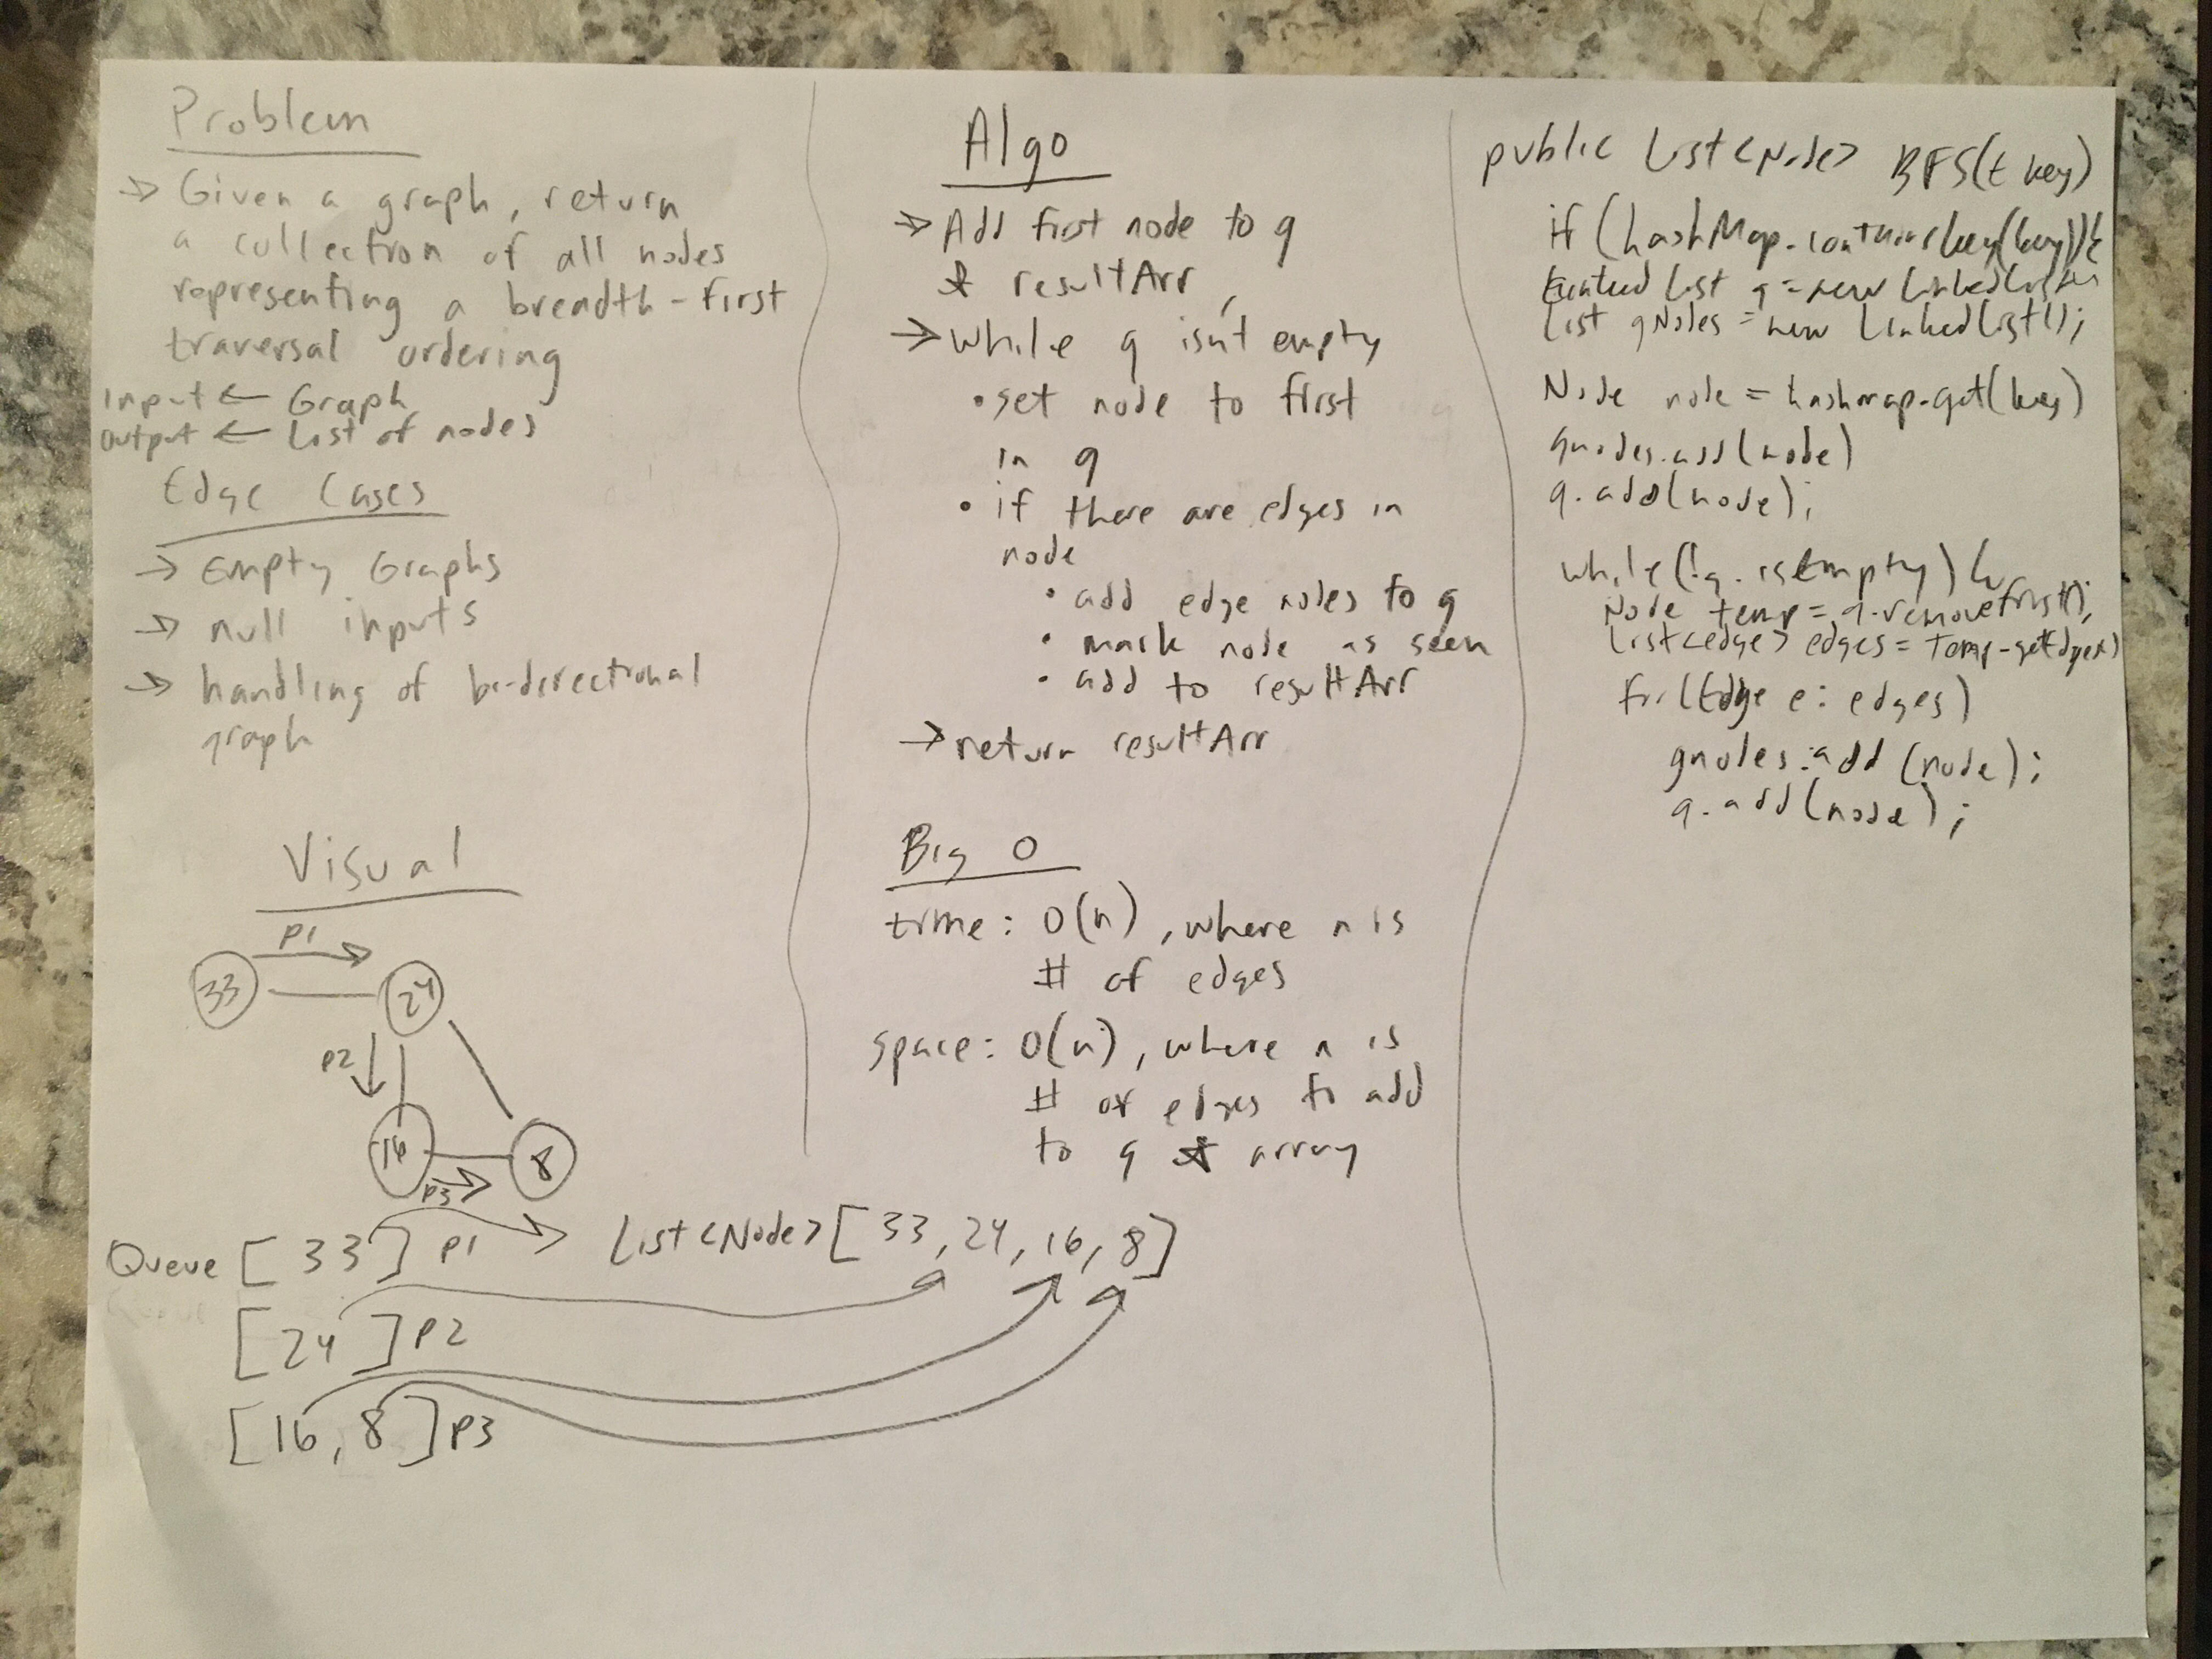 Problem
→ Given a graph, return
a collection of all nodes
representing a breadth-first
traversal ordering
Input ← Graph
Output ← List of nodes
Edge Cases
→ Empty Graphs
→ null inputs
→ handling of bi-directional
graph
Visual
P1
33
24
P2
16
8
P3
Queue [33] P1 → List<Node> [33, 24, 16, 8]
[24] P2
[16, 8] P3
Algo
→ Add first node to q
& resultArr
→ while q isn't empty
• set node to first
in q
• if there are edges in
node
• add edge nodes to q
• mark node as seen
• add to resultArr
→ return resultArr
Big O
time: O(n), where n is
# of edges
space: O(n), where n is
# of edges to add
to q & array
public List<Node> BFS(t key)
if (hashMap.containsKey(key)){
List q = new LinkedList
List gNodes = new LinkedList();
Node node = hashmap.get(key)
gnodes.add(node)
q.add(node);
while(!q.isEmpty) {
Node temp = q.removeFirst();
List<edge> edges = temp.getEdges()
for(Edge e: edges)
gnodes.add(node);
q.add(node);